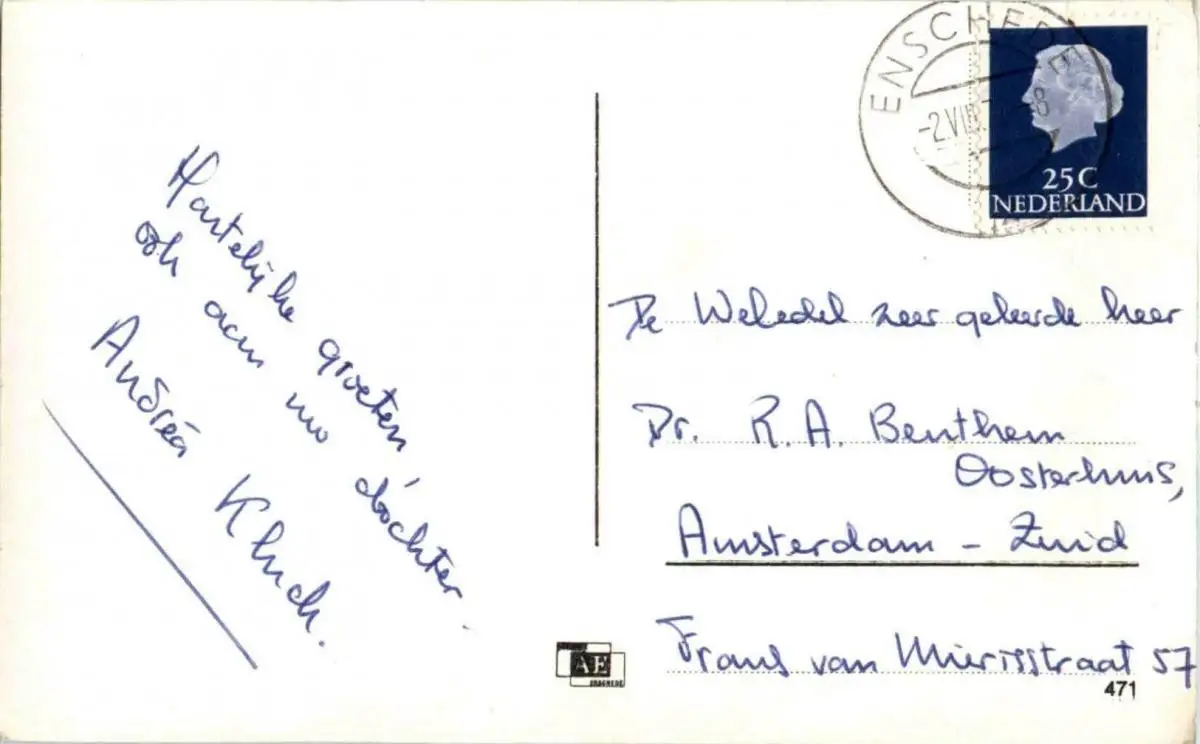 Hartelijke groeten,
ook aan uw dochter.
Andréa Kluck.
ENSCHEDE
-2.VIII
8
25C
NEDERLAND
De Weledel zeer geleerde heer
Dr. R. A. Benthem
Oosterhuis,
Amsterdam - Zuid
Frans van Mierisstraat 57
AE
471